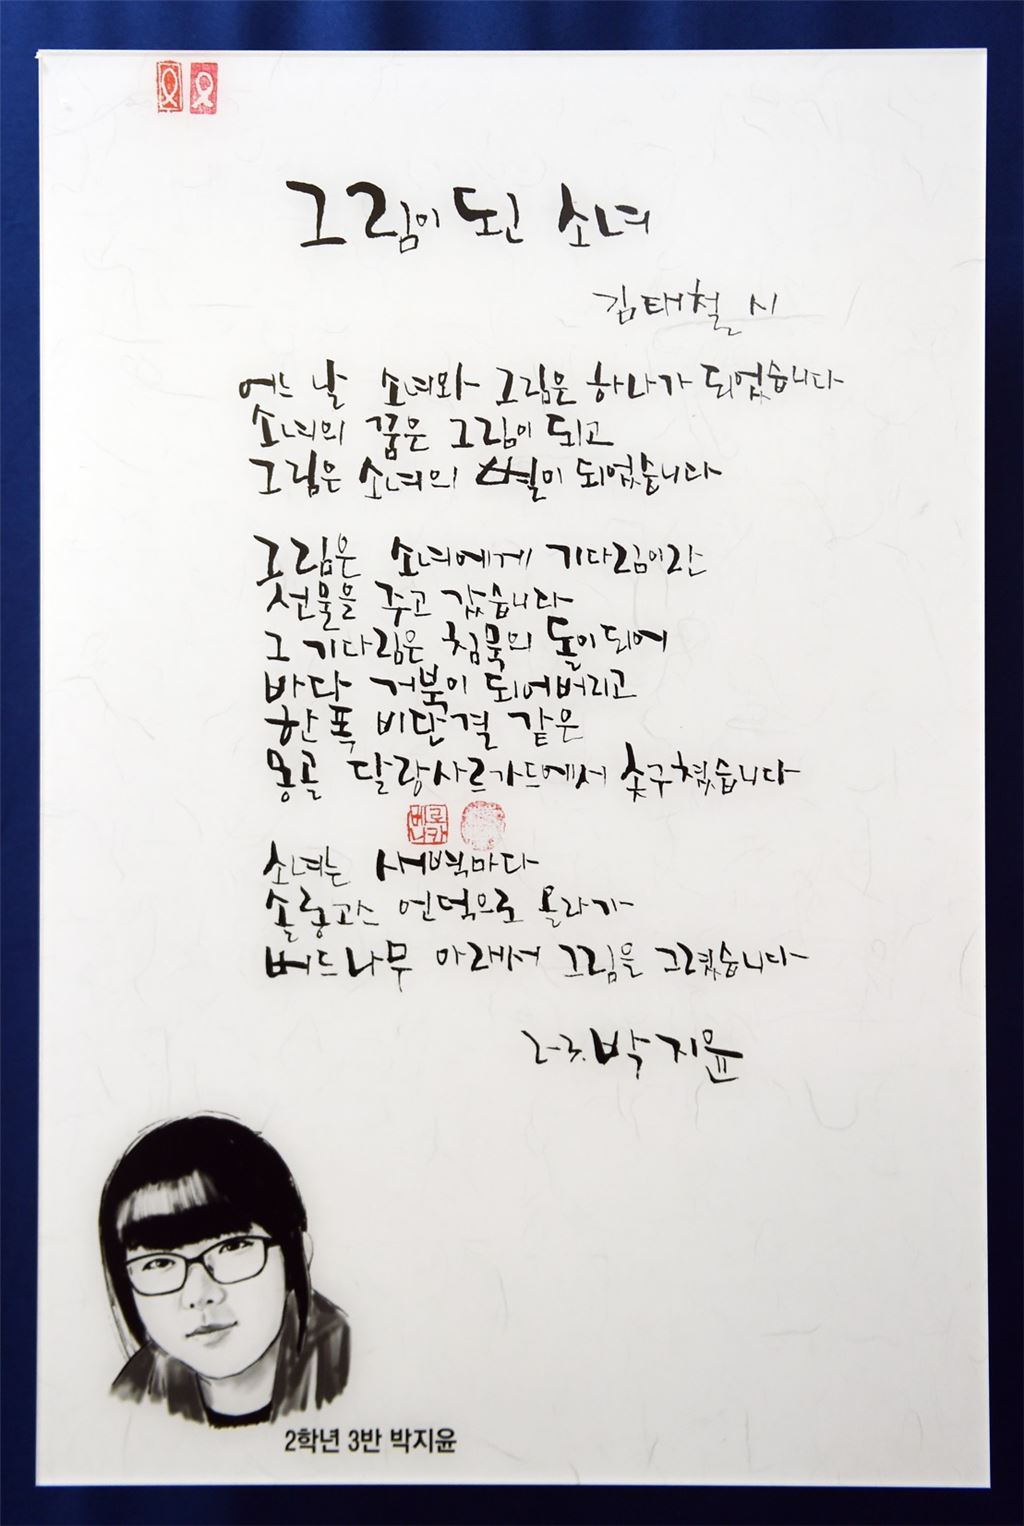 그림이 된 소녀
김태철 시
어느 날 소녀와 그림은 하나가 되었습니다
소녀의 꿈은 그림이 되고
그림은 소녀의 별이 되었습니다
그림은 소녀에게 기다림이란
선물을 주고 갔습니다
그 기다림은 침묵의 돌이 되어
바다 거북이 되어버리고
한 폭 비단결 같은
몽골 달랑사르가드에서 솟구쳤습니다
베로니카
소녀는 새벽마다
솔롱고스 언덕으로 올라가
버드나무 아래서 그림을 그렸습니다
2-3. 박지윤
2학년 3반 박지윤